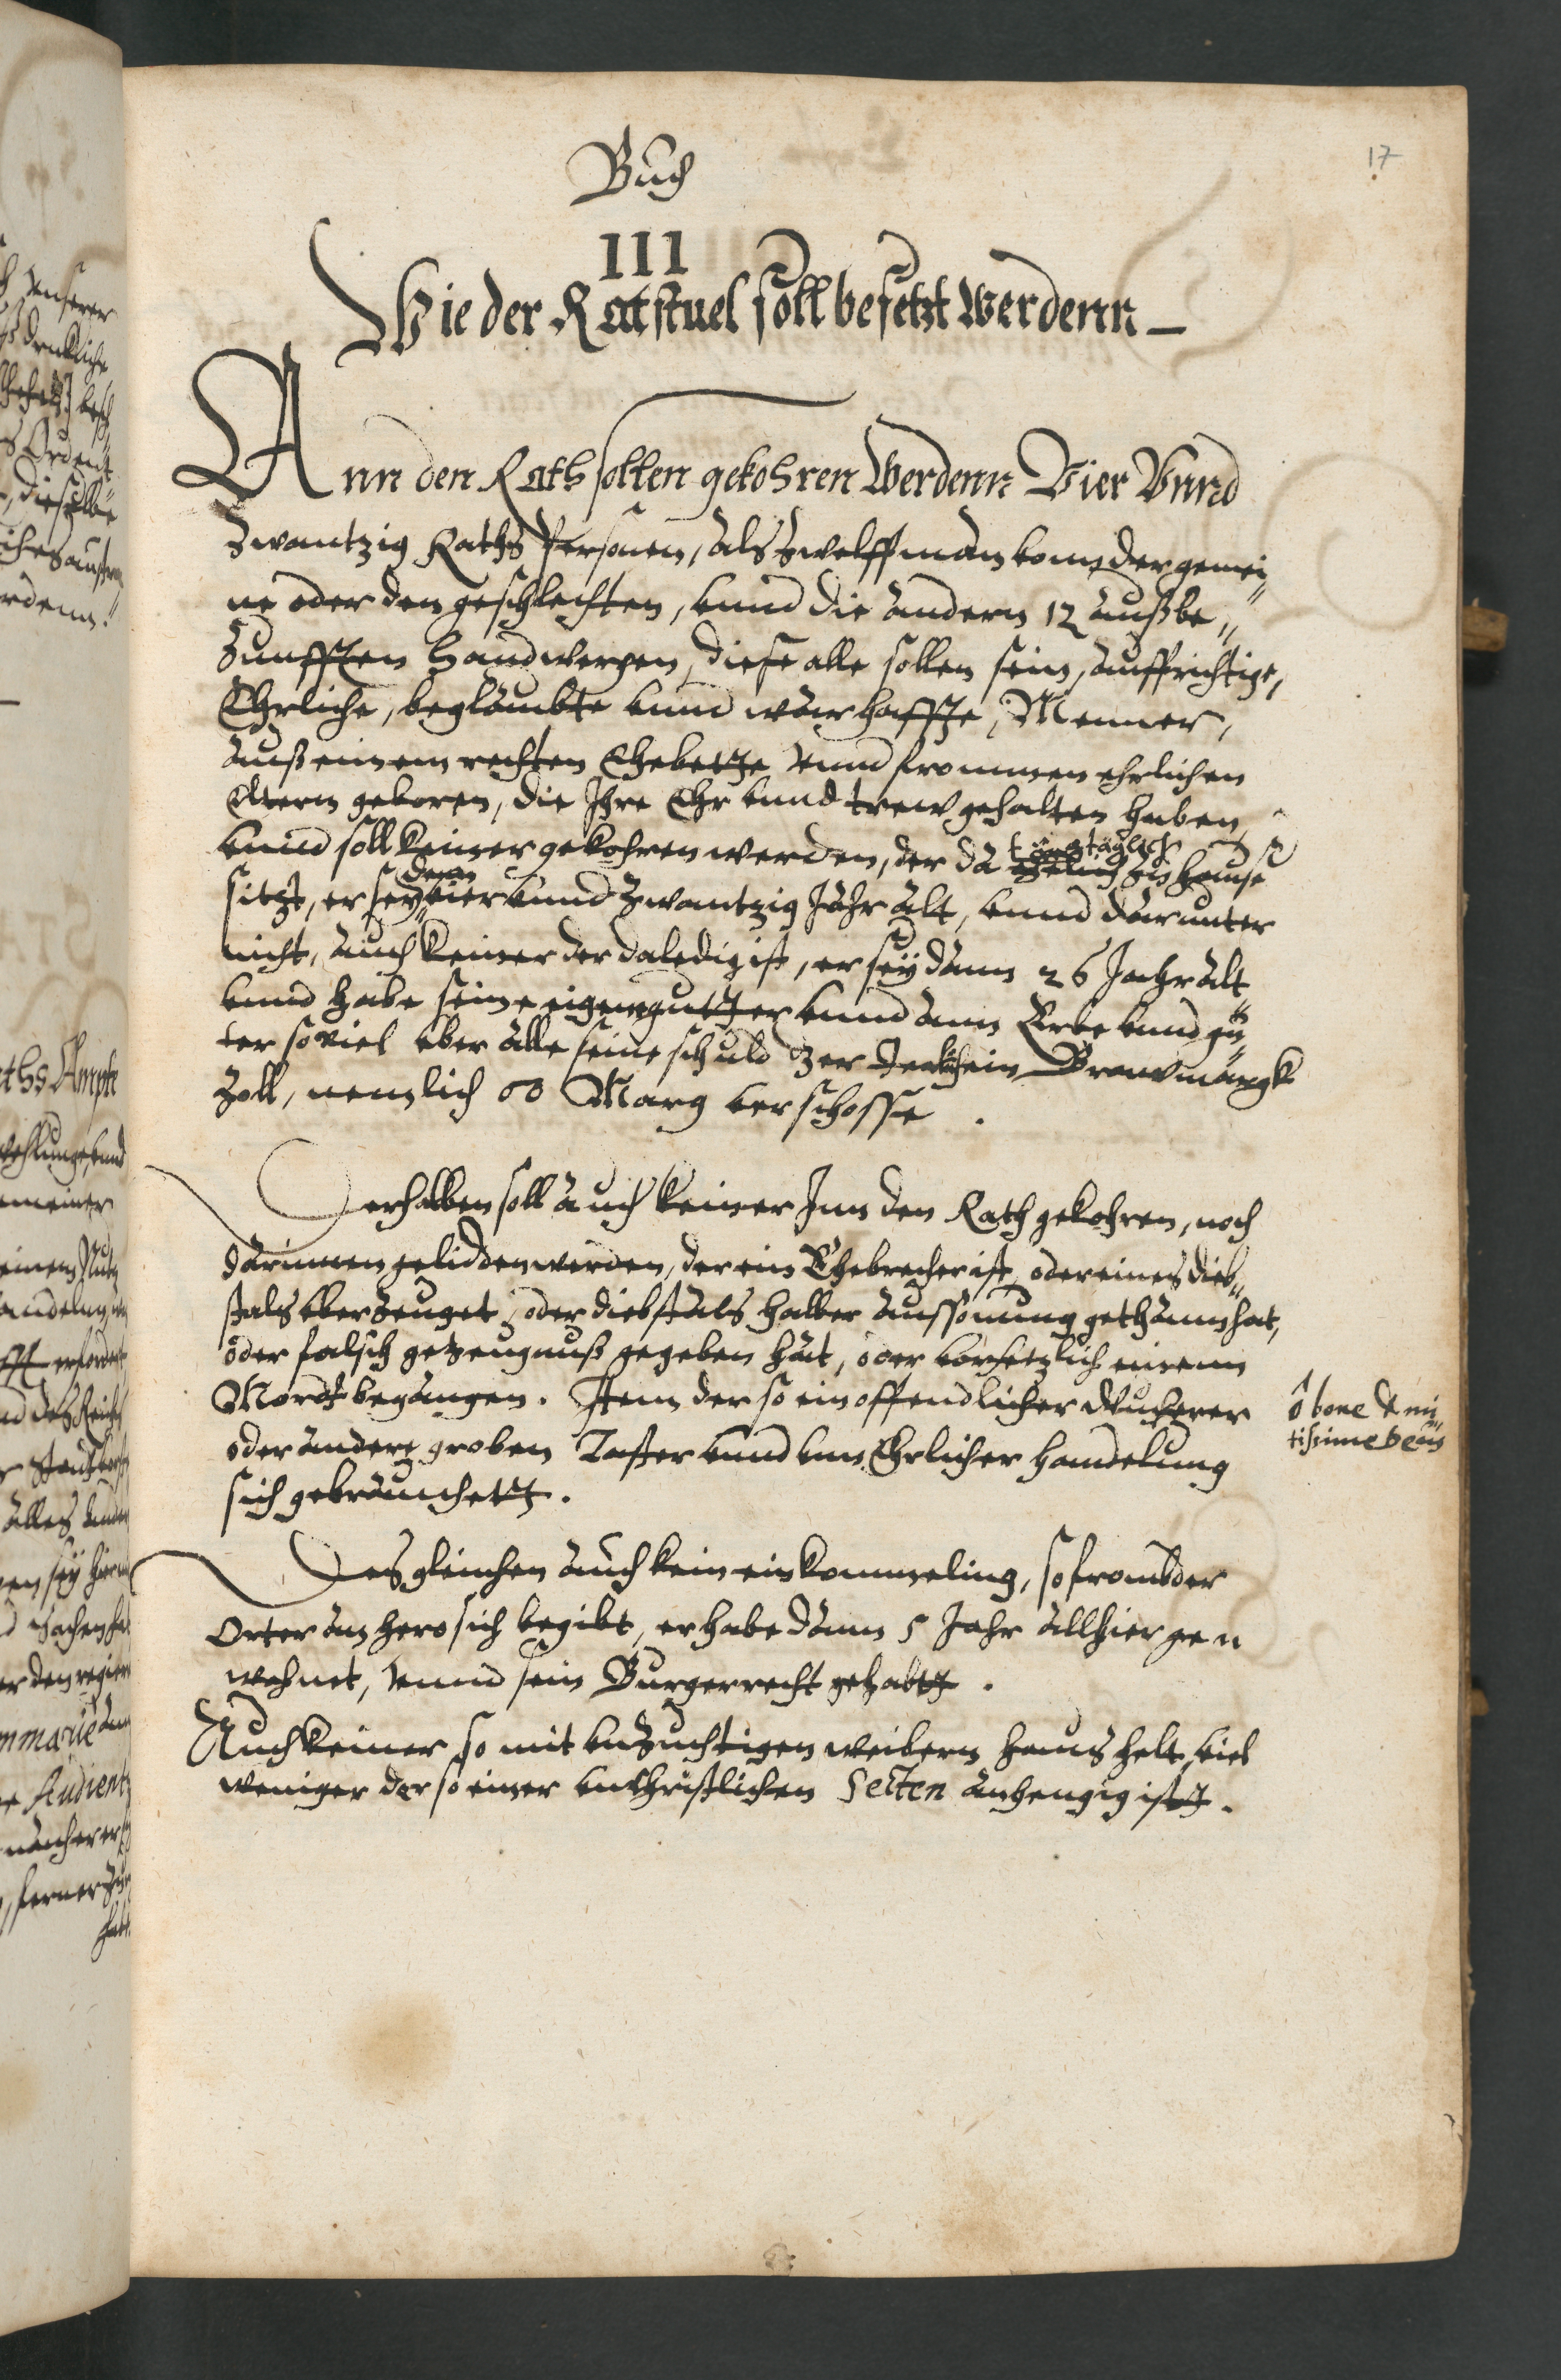 17
Buch
III
Wie der Ratstuel soll besetzt werdenn
Ann den Rath sollen gekohren werdenn Vier Vnnd
Zwantzig Raths Personen, als zwelff man vom der gemei„
ne oder den geschlechten, vnnd die andern 12 auß be„
Zunfften handwergen, diese alle sollen sein, auffrichtige,
Ehrliche, beglaubte vnnd warhaffte, Menner,
auß einem rechten Ehebette vnnd frommen ehrlichen
Eltern geboren, die Ihre Ehr vnnd trew gehalten haben,
vnnd soll keiner gekohren werden, der da täglich zu hause
sitzt, er sey denn vier vnnd zwantzig Jahr alt, vnnd darunter
nicht, auch keiner der da ledig ist, er sey dann 26 Jahr alt
vnnd habe seine eigene gutter vnnd ann Erbe vnnd gü„
ter so viel vber alle seine schuld
Zoll, nemlich Marg verschosse.
Derhalben soll auch keiner Inn den Rath gekohren, noch
darinnen geliddenn werden, der ein Ehebrecher ist, oder eines dieb„
stals vberzeuget, oder diebstals halber aussonung gethann hat,
oder falsch gezeugnuß gegeben hat, oder vorsetzlich einenn
Mordt begangen. Item der so ein offendlicher Wucherer
oder andere groben Laster vnnd vnn Ehrlicher handelung
sich gebrauchett.
ô bone & mi„
tissime Deus
Desgleichen auch kein einkommeling, so frombder
Orter an hero sich begibt, er habe dann 5 Jahr allhier ge„
wohnet, vnnd sein Burgerrecht gehabtt.
Auch keiner so mit vnzuchtigen weibern haus helt, viel
weniger der so einer vnchristlichen Secten anhengig ist.